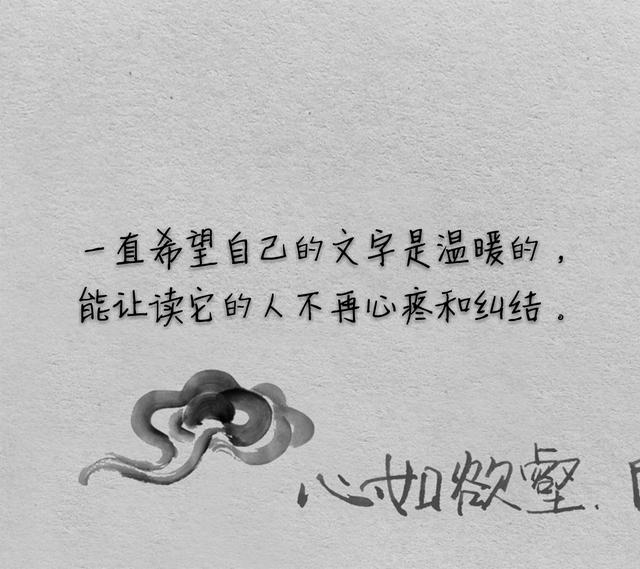 一直希望自己的文字是温暖的，
能让读它的人不再心疼和纠结。
心如欲壑.